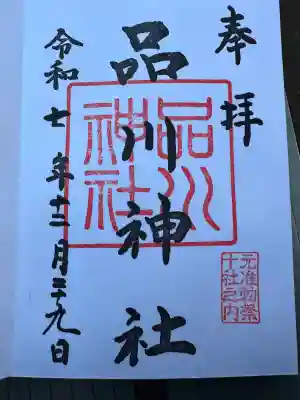 奉拝
品川神社
品川神社
元准勅祭
十社之内
令和七年十二月二十九日